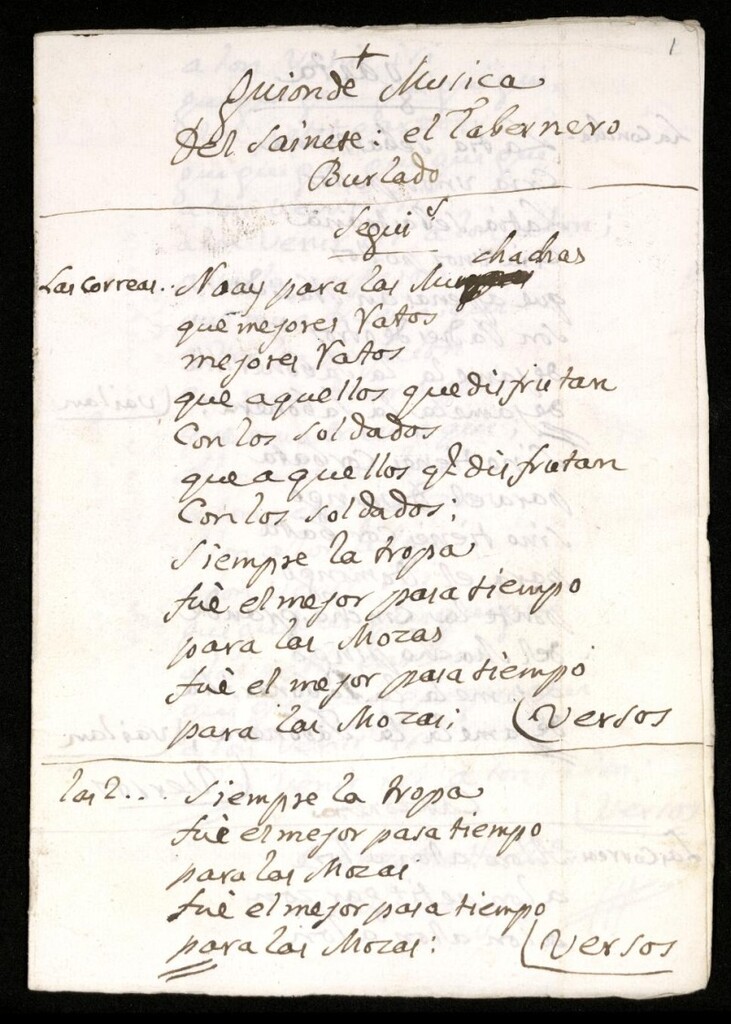 1
+
Guion de Musica
Del Sainete: el Tabernero
Burlado
Segui.s
Las Correas.. No ay para las Muchachas
que mejores Ratos
mejores Ratos
que aquellos que disfrutan
Con los soldados
que aquellos q.e disfrutan
Con los soldados;
Siempre la tropa
fuè el mejor pasa tiempo
para las Mozas
fuè el mejor pasa tiempo
para las Mozas; (Versos
las 2... Siempre la tropa
fuè el mejor pasa tiempo
para las Mozas
fuè el mejor pasa tiempo
para las Mozas: (Versos